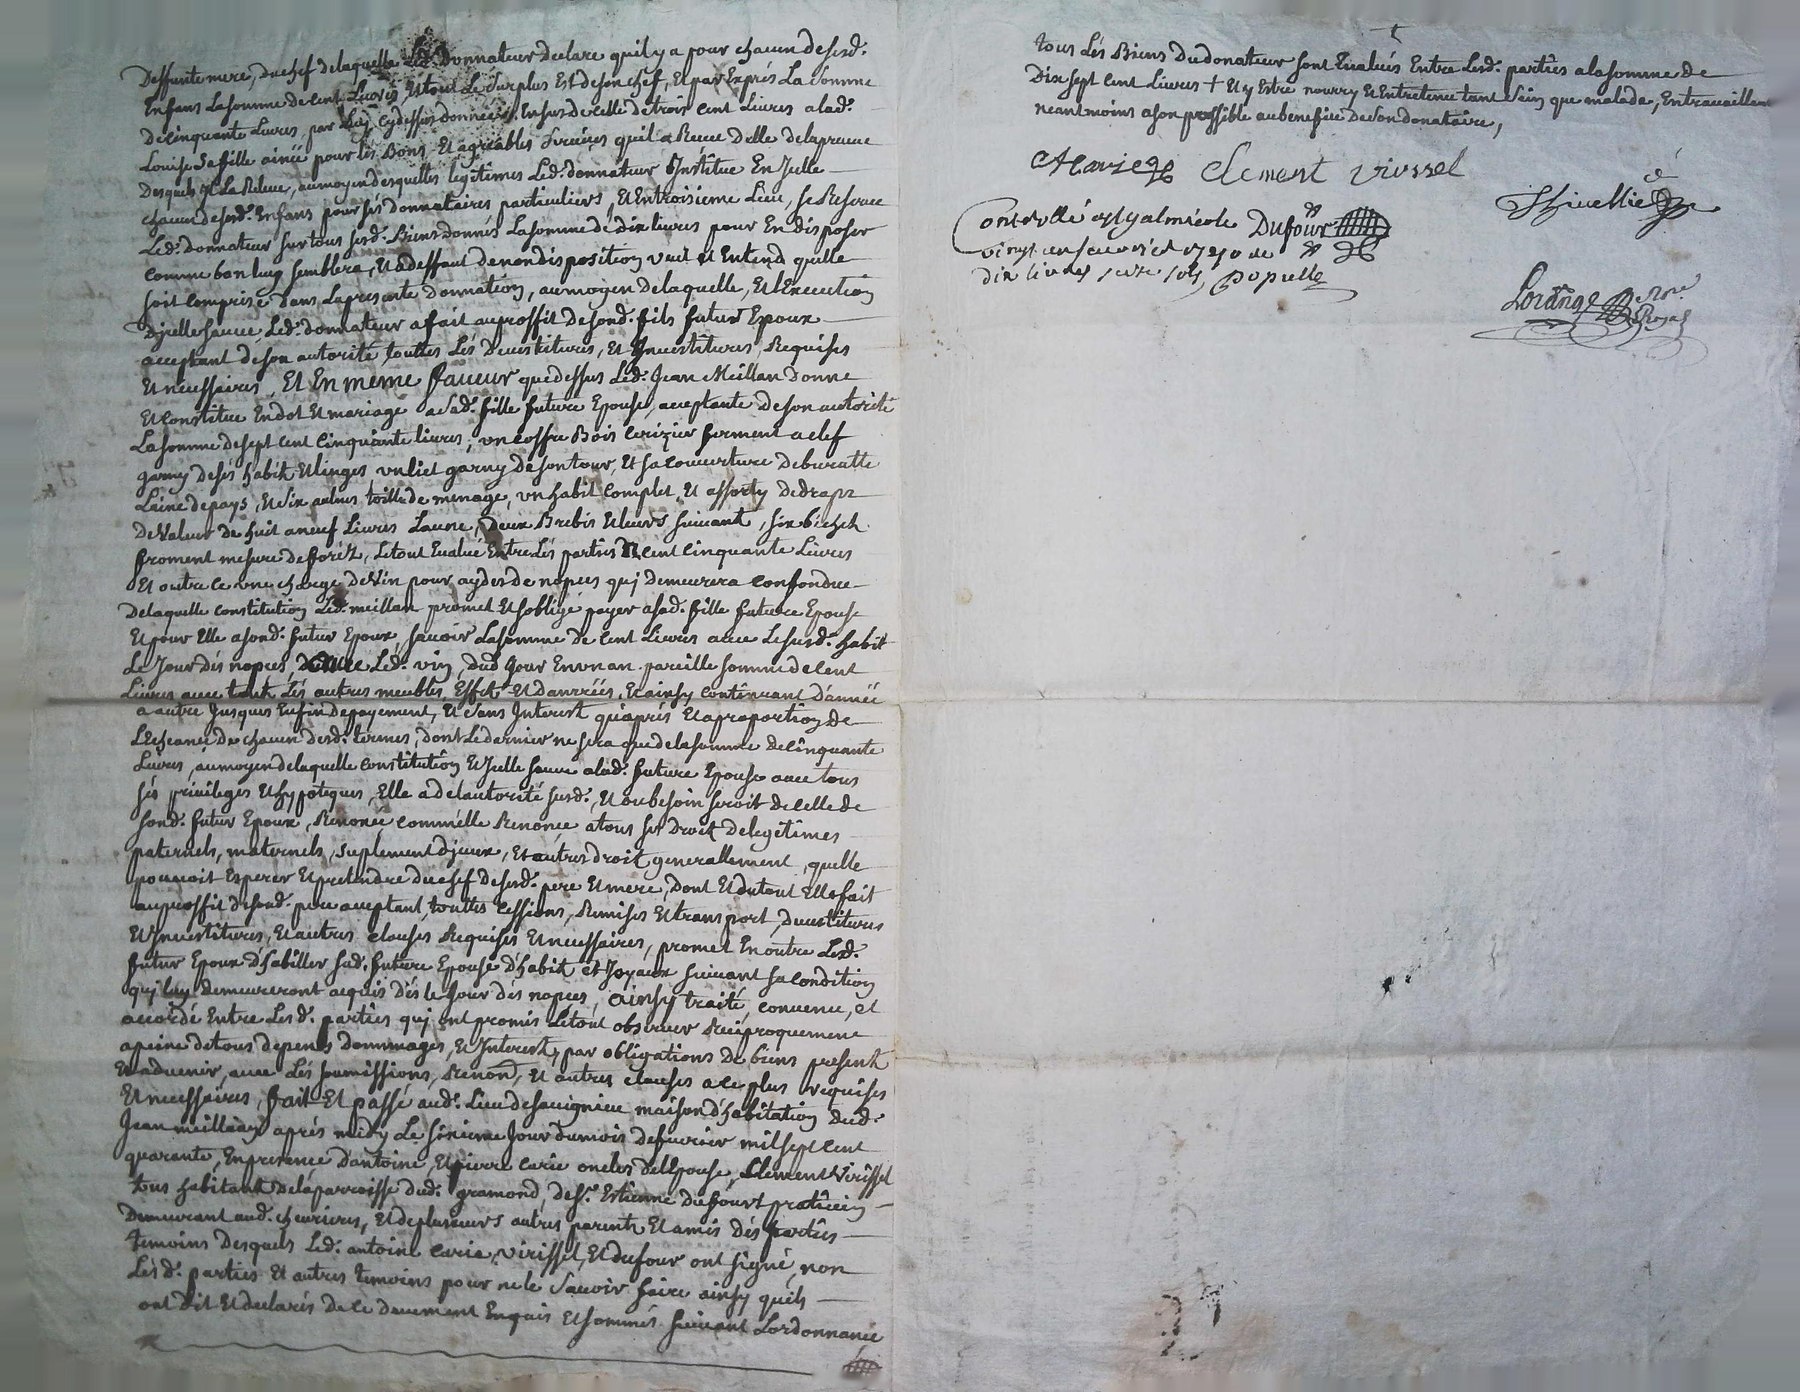 Deffunte mere, du chef de laquelle Led. Donnateur declare quil y a pour chacun desesd.
Enfans La somme de cent Livres Et tout Le surplus Est de son chef, Et par Exprés La somme
De cinquante Livres, par luy cydessus donnée, En sus de celle de trois cent Livres a lad.
Louise Sa fille ainée pour les Bons Et agréables services quil a Receu D'elle de la preuve
Desquels Il La Releve, au moyen desquelles legitimes Led. donnateur Institue En Icelle
chacun desesd. Enfans pour ses donnataires particuliers, Et En troisieme Lieu, se Reserve
Led. Donnateur sur tous sesd. Biens donnés La somme de dix livres pour En disposer
comme bon luy semblera, Et a deffaut de non disposition veut et Entend quelle
soit comprise dans La presente donnation, au moyen de laquelle, Et Execution
Djcelle sauve, Led. donnateur a fait au proffit desond. fils futur Epoux
acceptant de son autorité, touttes Les Devestitures, Et Jnvestitures, Requises
Et necessaires, Et En meme faveur que dessus Led. Jean Meillan Donne
Et Constitue En dot Et mariage a Sad. fille future Epouse, acceptante de son autorité
La somme de sept cent cinquante livres, un coffre Bois Cerizier fermant a clef
garny deses habits Et linges un lict garny de son tour, Et sa couverture de buratte
Laine de pays, Et Six aulnes toille de menage, un habit complet Et assorty de draps
De Valeur de huit a neuf Livres L'aune, Deux Brebis Et leurs suivants, six bichets
froment mesure de foréz, Le tout Evalué Entre Les parties a cent cinquante Livres
Et outre ce une charge de Vin pour ayder de nopces quj demeurera confondue
De laquelle constitution Led. meillan promet Et soblige payer a sad. fille future Epouse
Et pour Elle a sond. futur Epoux, scavoir La somme de cent Livres avec Le susd. habit
Le Jour des nopces, Led. vin, dud. Jour En un an pareille somme de cent
Livres avec tous Les autres meubles, Effets Et danrées, Et ainsy continuant d'année
a autre Jusques Enfin de payement, Et sans Interest qu'aprés Et a proportion de
L'Echeance De chacun desd. termes, dont Le dernier ne sera que de la somme de cinquante
Livres, au moyen de laquelle constitution Et Jcelle sauve a lad. future Epouse avec tous
ses privileges Et hypoteques, Elle a de lautorité susd., Et ou besoin seroit de celle de
sond. futur Epoux, Renoncé comm'elle Renonce a tous ses Droits de legitimes
paternels, maternels, suplement Djceux, Et autres droits generallement, quelle
pouvoit Esperer Et pretendre du chef desesd. pere Et mere, Dont Et du tout Elle fait
au proffit desond. pere acceptant, touttes Cessions, Remises Et transport, Devestitures
Et Jnvestitures, Et autres clauses Requises Et necessaires, promet En outre Led.
futur Epoux d'habiller sad. future Epouse d'habits et Joyaux suivant sa condition
quj luy demeureront acquis dés le Jour des nopces, ainsy traité, convenu, et
accordé Entre Lesd. parties quj ont promis Le tout observer Reciproquement
a peine de tous depens dommages, Et Interest, par obligations De biens presents
Et advenir, avec Les soumissions, Renond. Et autres clauses a ce plus requises
Et necessaires, fait Et passé aud. Lieu de savignieu maison d'habitation dud.
Jean meillan aprés midy Le sixieme Jour du mois de fevrier mil sept cent
quarante, En presence d'antoine, Et pierre Carie oncles del'Epouse, Clement Virissel
tous habitants de la parroisse dud. gramond, de sr. Estienne Duffour praticien
Demeurant aud. chevrieres, Et de plusieurs autres parents Et amis Des parties
temoins Desquels Led. antoine Carie, Virissel, Et dufour ont signé, non
Lesd. parties Et autres temoins pour ne le Sçavoir faire ainsy quils
ont Dit Et declarés de ce Deuement Enquis Et sommés suivant Lordonnance
tous Les Biens Du donateur sont Evalués Entre Lesd. parties a la somme de
Dix sept cent Livres + Et y Estre nourry Et Entretenue tant Sain que malade, En travaillant
neantmoins a son possible au benefice de Son donataire,
A Carie Clement virssel
Controllé a St galmier le Dufour
vingt un fevrier 1740 Reçu
dix livres seize sols Populle
Lorange Nore Royal